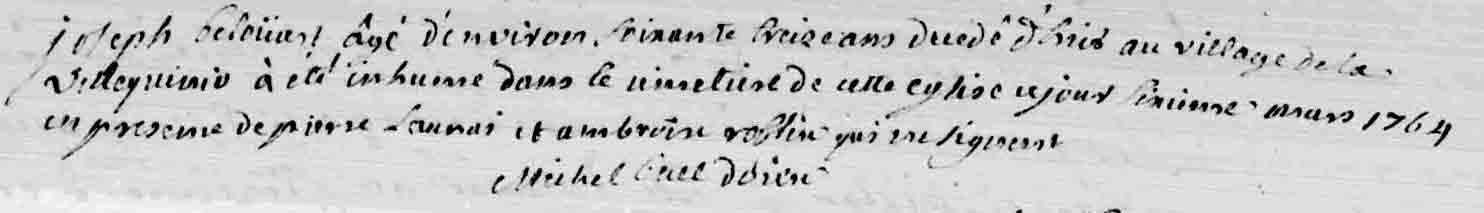 joseph belouart âgé d'environ soixante treize ans decedé d'hier au village de la
Villequinio à été inhumé dans le cimetiere de cette eglise ce jour sixieme mars 1764
en presence de pierre Launai et ambroise roslin qui ne signent
Michel doien